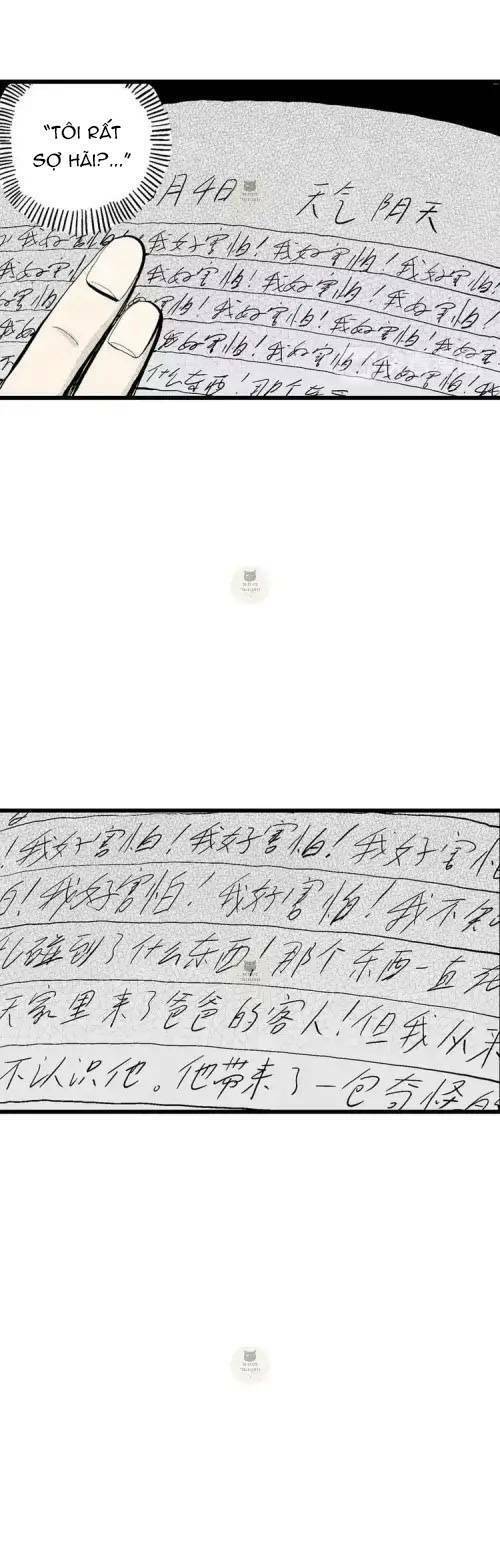 "TÔI RẤT
SỢ HÃI?..."
月4日 天气 阴天
！我好害怕！我好害怕！我好害怕！我好害怕！
我好害怕！我好害怕！我好害怕！
我好害怕！我好害怕！我好害怕！我好
我好害怕！我好害怕！我好害怕！我
什么东西！那个东西
！我好害怕！我好害怕！我好害
怕！我好害怕！我好害怕！我不知
碰到了什么东西！那个东西一直在
天家里来了爸爸的客人！但我从来
不认识他。他带来了一包奇怪的